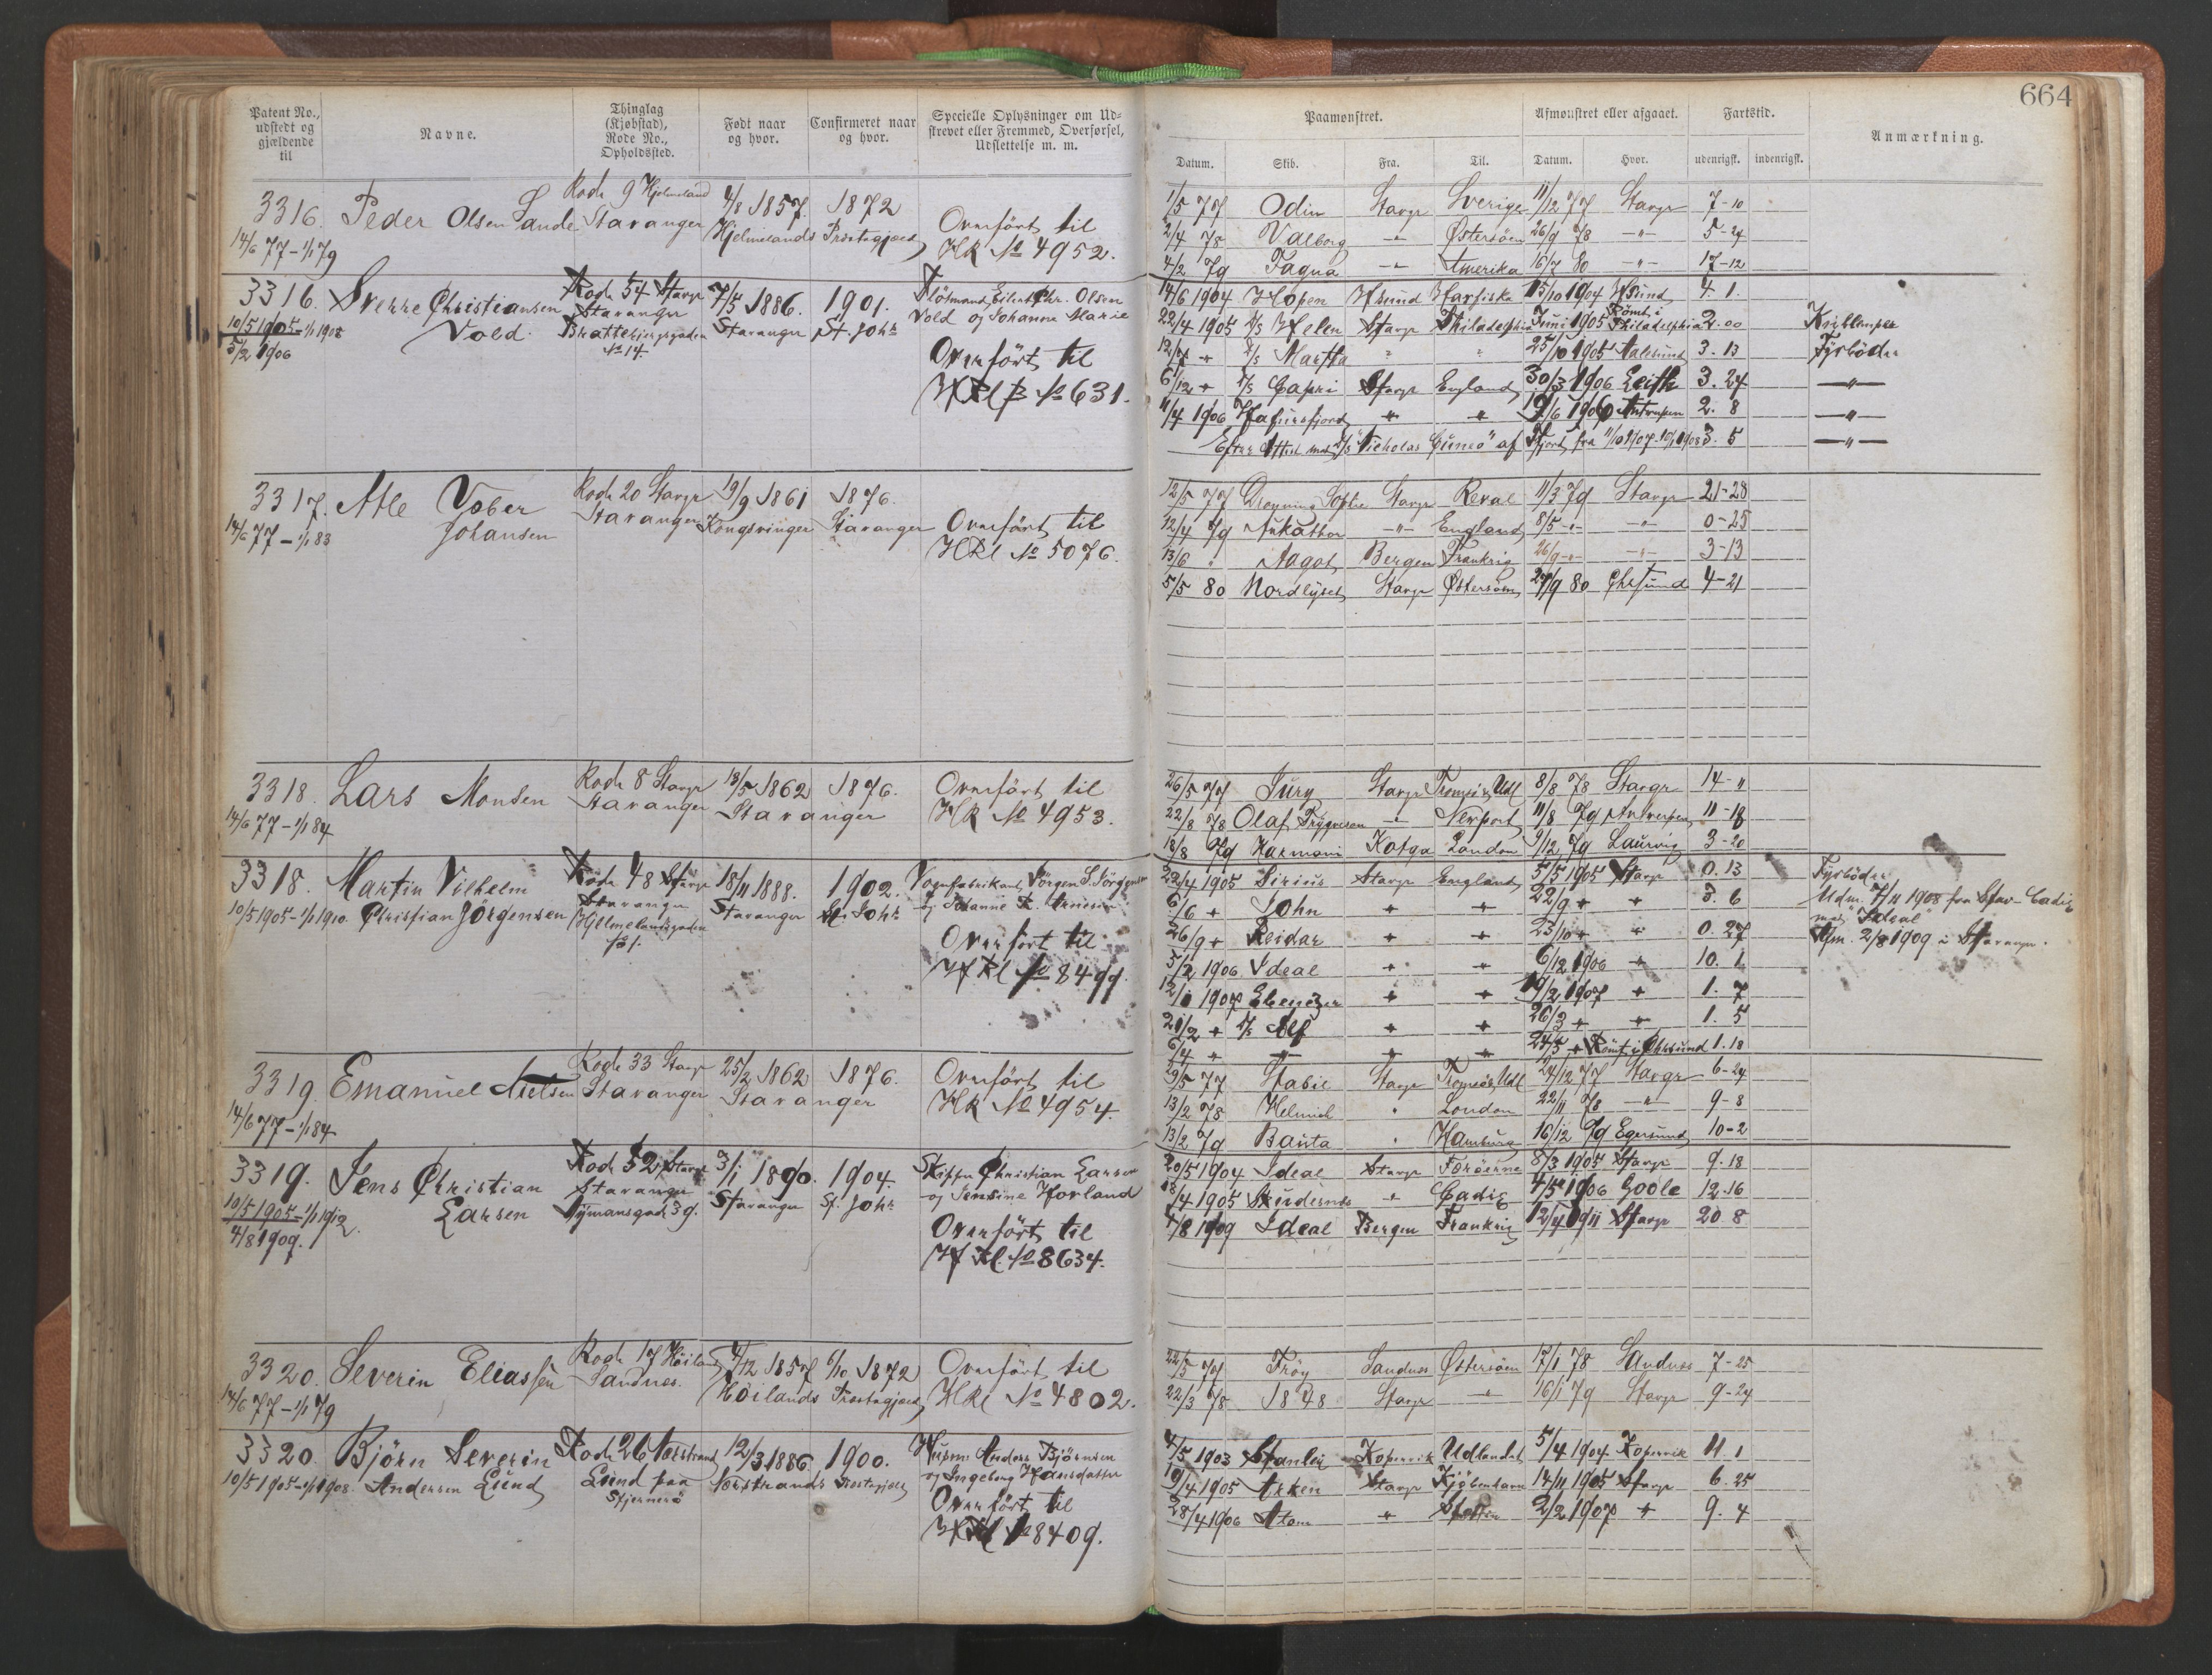 664
Patent No., udstedt og gjældende til
Navne.
Thinglag (Kjøbstad), Rode No., Opholdssted.
Født naar og hvor.
Confirmeret naar og hvor.
Specielle Oplysninger om Udskrevet eller Fremmed, Overførsel, Udslettelse m. m.
Paamønstret.
Afmønstret eller afgaaet.
Fartstid.
Anmærkning.
Datum. Skib. Fra. Til. Datum. Hvor. udenrigsk. indenrigsk.
3316. Peder Olsen Sande Rode 9 Hjelmeland 4/8 1857. 1872
14/6 77 - 1/1 79 Stavanger Hjelmelands Præstegjæld Overført til
HR No 4952.
1/5 77 Odin Stavgr Sverige 11/12 77 Stavgr 7-10
2/4 78 Valborg -"- Østersøen 26/9 78 -"- 5-24
4/2 79 Fagna -"- Amerika 16/7 80 -"- 17-12
3316. Sverre Christiansen Vold. Rode 54 Stavgr 7/5 1886. 1901.
10/5 1905 - 1/1 1908 Stavanger Stavanger St. Johs
5/2 1906 No 14.
Olsen Vold og Johanne Marie
Overført til
HRl B No 631.
14/6 1904 Hopen 15/10 1904 4. 1.
22/4 1905 D/S Helen Stavgr Philadelphia Juni 1905 Rømt i Philadelphia 2.00
D/S Martha " " 25/10 1905 Aalesund 3. 13 Fyrbøder
6/12 " D/S Capri Stavgr England 30/3 1906 Leith 3. 24 -"-
11/4 1906 Hafursfjord " " 19/6 1906 Antwerpen 2. 8 -"-
Efter Attest med D/S "Nicholas Cuneo" af fra 11/10 1907 - 10/1 1908 3. 5 -"-
3317. Atle Vober Johansen Rode 20 Stavgr 19/9 1861 1876.
14/6 77 - 1/1 83 Stavanger Kongsvinger Stavanger Overført til
HRl No 5076.
12/5 77 Dronning Sophie Stavgr Reval 11/3 79 Stavgr 21-28
12/4 79 -"- England 8/5 -"- -"- 0-25
13/6 " Aagot Bergen Frankrig 26/9 -"- -"- 3-13
5/5 80 Nordlyset Stavgr Østersøen 29/9 80 Chrsund 4-21
3318. Lars Monsen Rode 8 Stavgr 13/5 1862 1876. Overført til
14/6 77 - 1/1 84 Stavanger Stavanger HR No 4953.
26/5 77 Jury Stavgr Tromsø & Udl 8/8 78 Stavgr 14- "
22/8 78 Olaf Trygvesen -"- Newport 11/8 79 Antwerpen 11-18
18/8 79 Harmoni Kotga London 9/12 79 Laurvig 3-20
3318. Martin Vilhelm Christian Jørgensen Rode 48 Stavgr 18/11 1888. 1902.
10/5 1905 - 1/1 1910. Stavanger Hjelmelandsgaden No 1. Stavanger St. Johs
Vognfabrikant Jørgen S. Jørgensen
Overført til
HRl No 8499.
22/4 1905 Sirius Stavgr England 5/5 1905 Stavgr 0. 13 Fyrbøder
6/6 " John " " 22/9 " " 3. 6 Udm. 7/11 1908 fra Stav- Cadiz
26/9 " Reidar " " 23/10 " " 0. 27 med "Ideal" Afm. 2/8 1909 i Stavanger.
5/2 1906 Ideal " " 6/12 1906 " 10. 1
12/1 1907 Ebenezer " " 19/2 1907 " 1. 7
21/2 " D/S Alf " " 26/3 " " 1. 5
6/4 " " " " 24/5 " Rømt i Chrsund 1.18
3319. Emanuel Nielsen Rode 33 Stavgr 25/2 1862 1876. Overført til
14/6 77 - 1/1 84 Stavanger Stavanger HR No 4954.
9/5 77 Stabil Stavgr Tromsø & Udl 24/12 77 Stavgr 6-24
13/2 78 Helmich " London 22/11 78 -"- 9-8
13/2 79 Bauta " Hamburg 16/12 79 Egersund 10-2
3319. Jens Christian Larsen Rode 52 Stavgr 3/1 1890. 1904.
10/5 1905 - 1/1 1912. Stavanger Nymansgade 39. Stavanger St. Johs
4/8 1909.
Skipper Christian Larsen
og Jensine Horland
Overført til
HRl. No 8634.
20/5 1904 Ideal Stavgr Færøerne 8/3 1905 Stavgr 9. 18
18/4 1905 " Cadiz 4/5 1906 Goole 12.16
4/8 1909 Ideal Bergen Frankrig 12/4 1911 Stavgr 20 8
3320. Severin Eliassen Rode 17 Höiland 4/12 1857 6/10 1872 Overført til
14/6 77 - 1/1 79 Sandnes. Höilands Præstegjæld HRl No 4802.
22/5 77 Frøy Sandnes Østersøen 17/1 78 Sandnes 7-25
22/3 78 1848 Stavgr -"- 16/1 79 Stavgr 9-24
3320. Bjørn Severin Andersen Lund Rode 26 Nærstrand 12/3 1886 1900.
10/5 1905 - 1/1 1908. Lund paa Stjernerø Nærstrands Præstegjæld
Husm Anders Bjørnsen
og Ingeborg Hansdatter
Overført til
HRl No 8409.
4/5 1903 Stanley Kopervik Udlandet 5/4 1904 Kopervik 11. 1
19/4 1905 Ørken Stavgr Kjøbenhavn 14/11 1905 Stavgr 6.25
28/4 1906 Atom " Stettin 2/2 1907 " 9. 4